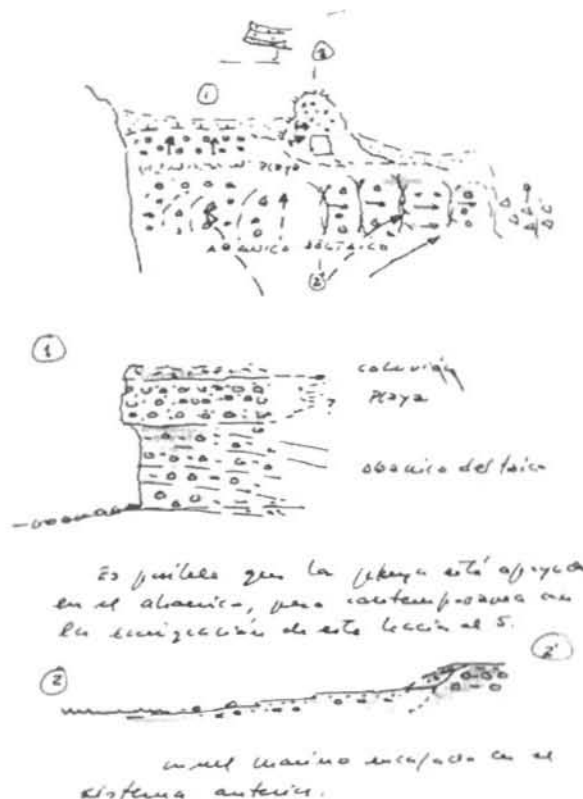 2
1
PLAYA
ABANICO DELTAICO
2'
1
coluvión
Playa
abanico deltaico
Es posible que la playa esté apoyada
en el abanico, pero contemporanea con
la emigración de este hacia el S.
2
2'
nivel marino encajado en el
sistema anterior.